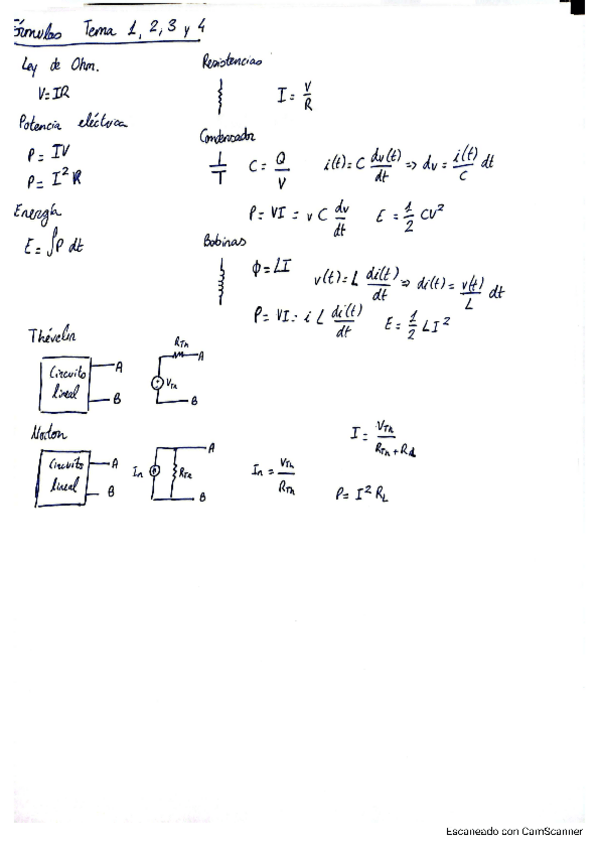 Fórmulas Tema 1, 2, 3 y 4
Ley de Ohm.
V=IR
Potencia eléctrica
P = IV
P = I² R
Energía
E = ∫P dt
Resistencias
I = V/R
Condensador
C = Q/V i(t) = C dv(t)/dt => dv = i(t)/C dt
P = VI = v C dv/dt E = 1/2 CV²
Bobinas
Φ = LI v(t) = L di(t)/dt => di(t) = v(t)/L dt
P = VI = i L di(t)/dt E = 1/2 LI²
Thévenin
Circuito lineal A B
RTh A
VTh
B
Norton
Circuito lineal A B
In RTh A B
In = VTh/RTh
I = VTh/RTh + RL
P = I² RL
Escaneado con CamScanner